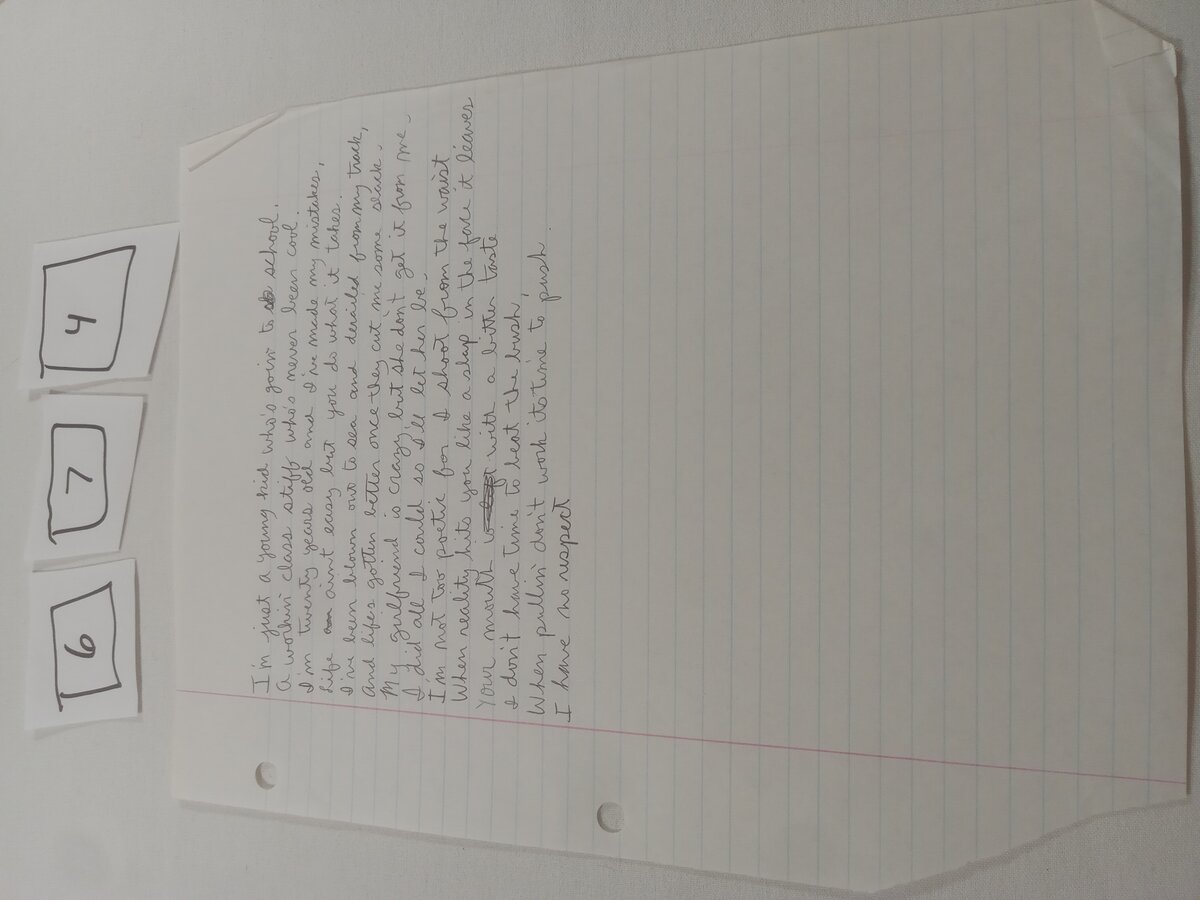 6 7 4
I'm just a young kid who's goin' to school,
a workin' class stiff who's never been cool.
I'm twenty years old and I've made my mistakes,
life ain't easy but you do what it takes.
I've been blown out to sea and derailed from my track,
and life's gotten better once they cut me some slack.
My gurlfriend is crazy, but she don't get it from me.
I did all I could so I'll let her be.
I'm not too poetic for I shoot from the waist
When reality hits you like a slap in the face it leaves
your mouth with a bitter taste
I don't have time to beat the bush,
When pullin' don't work its time to push.
I have no respect